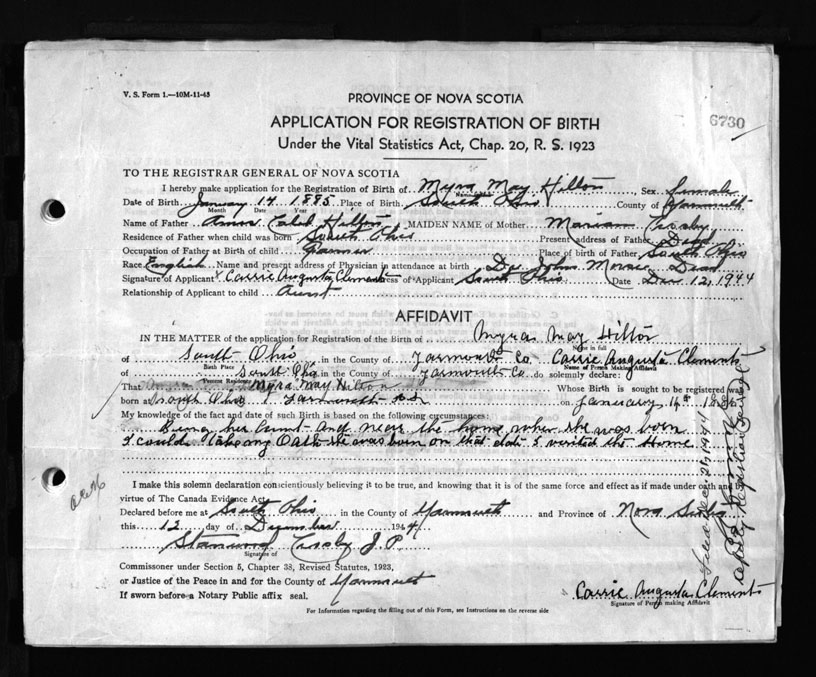 V. S. Form 1.—10M-11-43
PROVINCE OF NOVA SCOTIA
6730
APPLICATION FOR REGISTRATION OF BIRTH
Under the Vital Statistics Act, Chap. 20, R. S. 1923
TO THE REGISTRAR GENERAL OF NOVA SCOTIA
I hereby make application for the Registration of Birth of Myra May Hilton Sex female
Date of Birth January 14 1885 Place of Birth South Ohio County of Yarmouth
Month Date Year
Name of Father Caleb Hilton MAIDEN NAME of Mother Mariam Crosby
Residence of Father when child was born South Ohio Present address of Father Dead
Occupation of Father at Birth of child Farmer Place of birth of Father South Ohio
Race English Name and present address of Physician in attendance at birth Dr John Dead
Signature of Applicant x Carrie Augusta Clements Address of Applicant South Ohio Date Dec 12, 1944
Relationship of Applicant to child Aunt
AFFIDAVIT
IN THE MATTER of the application for Registration of the Birth of Myra May Hilton
Name in full
of South Ohio in the County of Yarmouth Co. Carrie Augusta Clements
Birth Place Name of Person Making Affidavit
of South Ohio in the County of Yarmouth Co. do solemnly declare:
Present Residence
That Myra May Hilton Whose Birth is sought to be registered was
born at South Ohio Yarmouth N.S. on January 14th
My knowledge of the fact and date of such Birth is based on the following circumstances:
Being her Aunt and near the home when she was born
I could take my Oath she was born on that date I visited the Home
I make this solemn declaration conscientiously believing it to be true, and knowing that it is of the same force and effect as if made under oath and
virtue of The Canada Evidence Act.
Declared before me at South Ohio in the County of Yarmouth and Province of Nova Scotia
this 12 day of December 1944
Crosby J.P.
Signature of
Commissioner under Section 5, Chapter 38, Revised Statutes, 1923,
or Justice of the Peace in and for the County of Yarmouth
If sworn before a Notary Public affix seal.
Carrie Augusta Clements
Signature of Person making Affidavit
For Information regarding the filling out of this Form, see Instructions on the reverse side